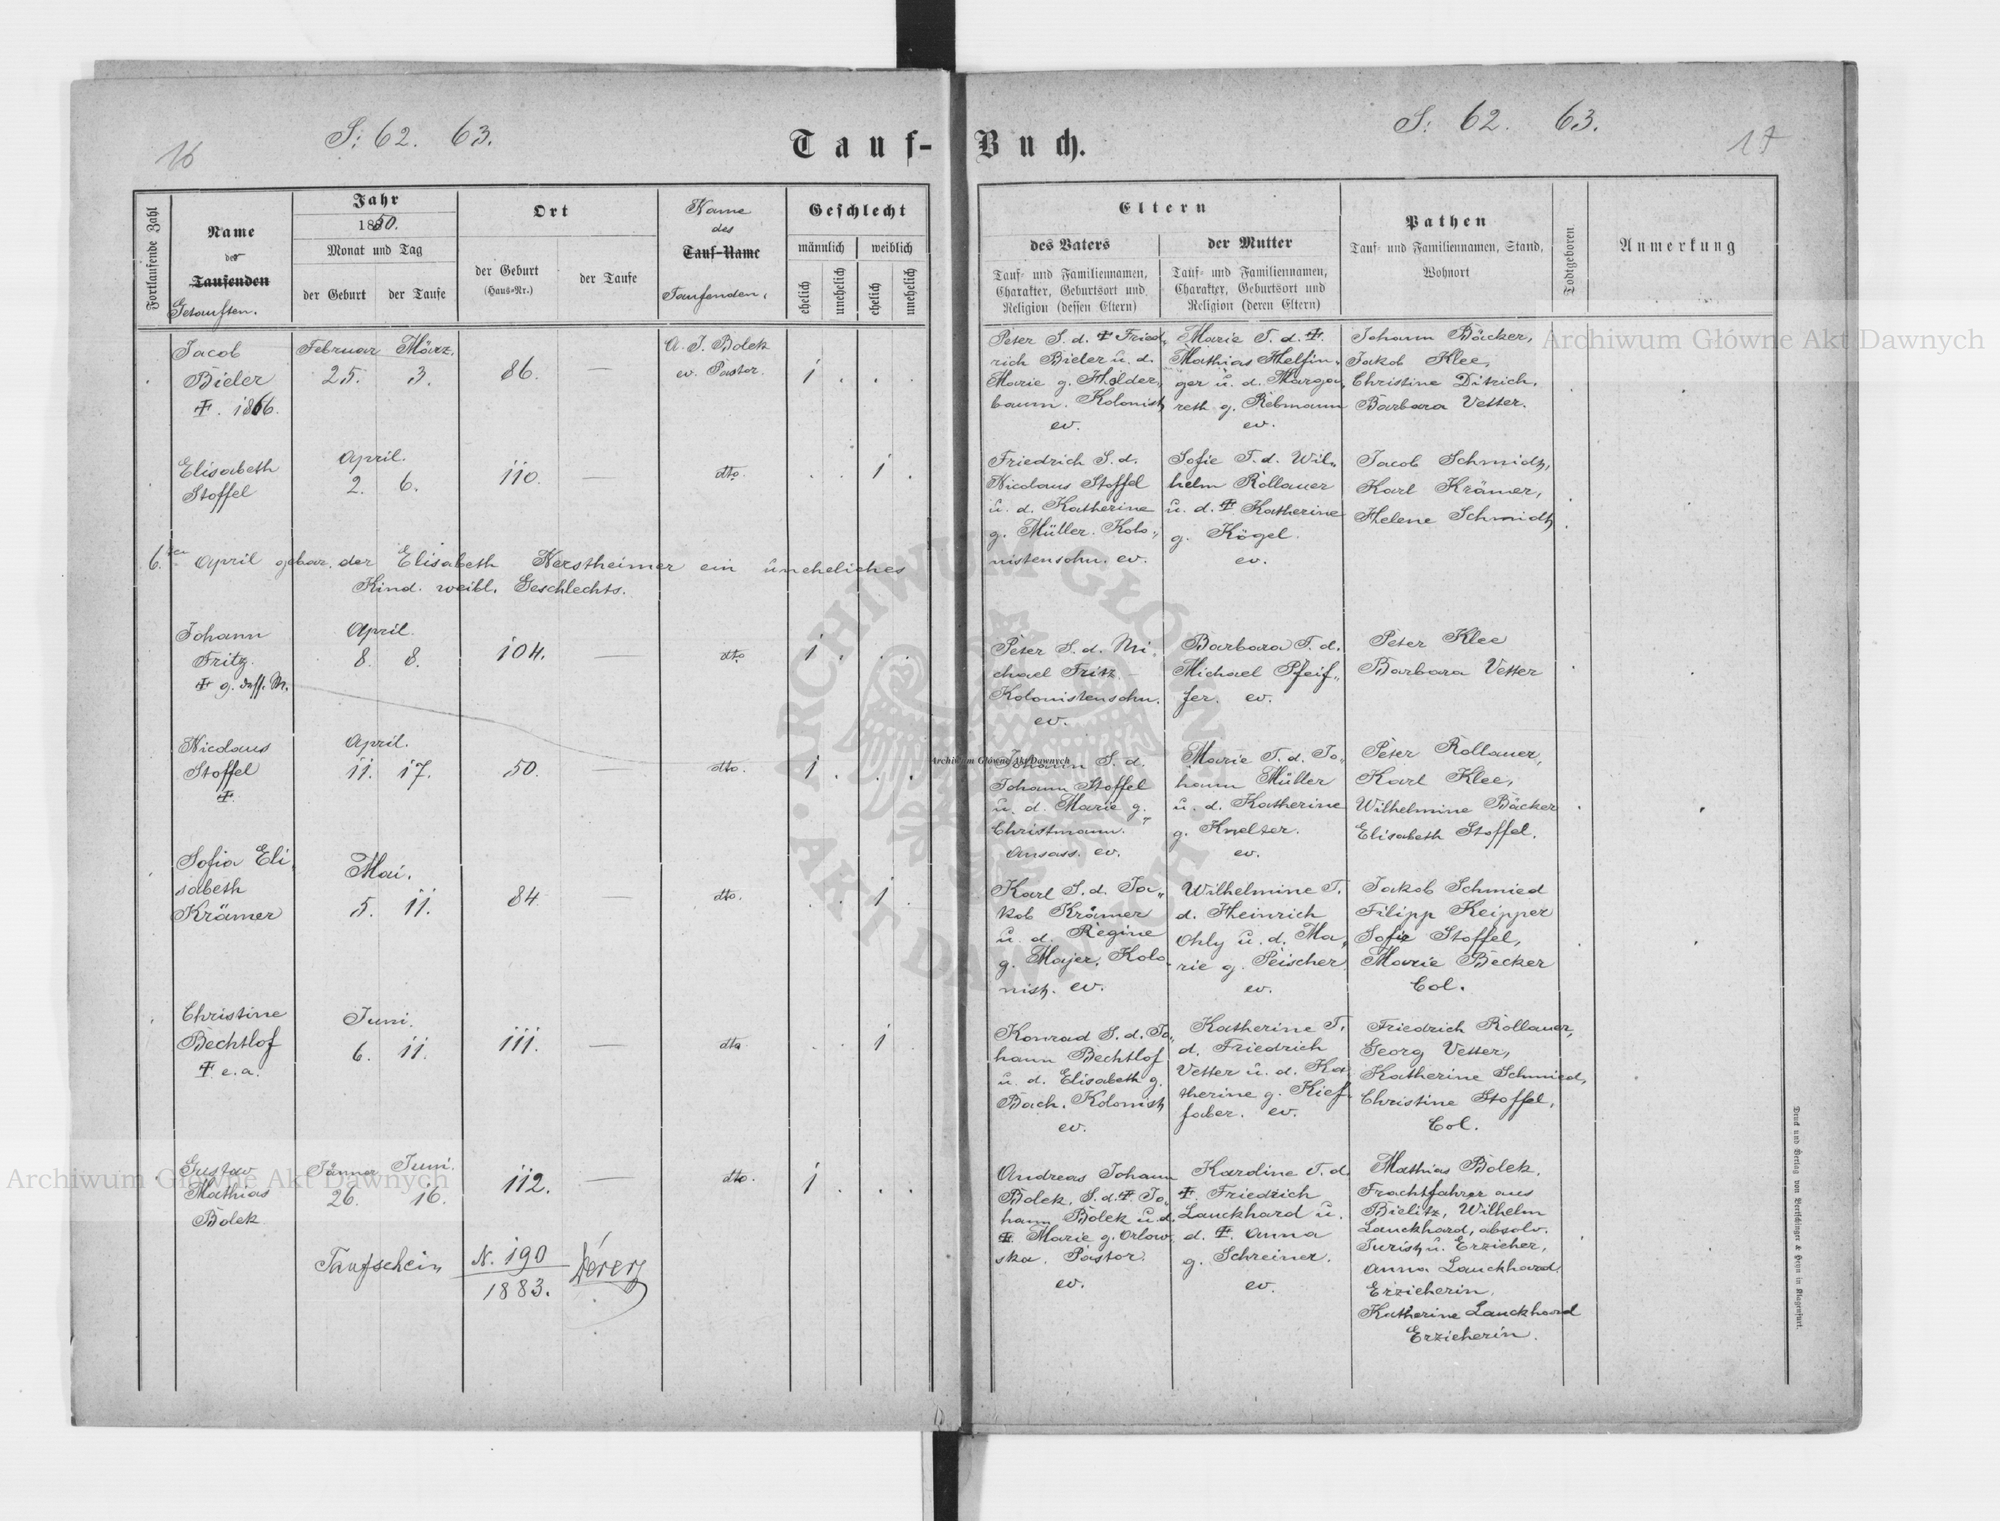 16
S: 62. 63.
Tauf-
Fortlaufende Zahl
Name
des
Taufenden
Getauften.
Jahr
1850.
Monat und Tag
der Geburt
der Taufe
Ort
der Geburt
(Haus-Nr.)
der Taufe
Name
des
Tauf-Name
Taufenden.
Geschlecht
männlich
weiblich
ehelich
unehelich
ehelich
unehelich
Jacob
Bieler
1866.
Februar März.
25. 3.
86. —
A. J. Bolek
ev. Pastor.
1 . . .
Elisabeth
Stoffel
April.
2. 6.
110. —
dto.
. . 1 .
6. ten April gebar. der Elisabeth Kerstheimer ein uneheliches
Kind. weibl. Geschlechts.
Johann
Fritz.
g. dess. M.
April.
8. 8.
104. —
dto.
1 . . .
Nicolaus
Stoffel
April.
11. 17.
50. —
dto.
1 . . .
Sofia Eli-
sabeth
Krämer
Mai.
5. 11.
84 —
dto.
. . 1 .
Christine
Bechtlof
e. a.
Juni.
6. 11.
111. —
dto
. . 1
Gustav
Mathias
Bolek
Jänner Juni.
26. 16.
112. —
dto.
1 . . .
Taufschein N. 190
1883.
Buch.
S: 62. 63.
17
Eltern
des Vaters
Tauf- und Familiennamen,
Charakter, Geburtsort und
Religion (dessen Eltern)
der Mutter
Tauf- und Familiennamen,
Charakter, Geburtsort und
Religion (deren Eltern)
Pathen
Tauf- und Familiennamen, Stand,
Wohnort
Todtgeboren
Anmerkung
Peter S. d. Fried.
rich Bieler u. d.
Marie g. Holder-
baum. Kolonist
ev.
Marie T. d.
Mathias Helfin-
ger u. d. Marga-
reth g. Rebmann
ev.
Johann Bäcker,
Jakob Klee,
Christine Ditrich.
Barbara Vetter.
Friedrich S. d.
Nicolaus Stoffel
u. d. Katherine
g. Müller. Kolo-
nistensohn. ev.
Sofie T. d. Wil-
helm Rollauer
u. d. Katherine
g. Kögel.
ev.
Jacob Schmidt,
Karl Krämer,
Helene Schmidt
Peter S. d. Mi-
chael Fritz.
Kolonistensohn.
ev.
Barbara T. d.
Michael Pfeif-
fer. ev.
Peter Klee
Barbara Vetter
Johann S. d.
Johann Stoffel
u. d. Marie g.
Christmann.
Ansass. ev.
Marie T. d. Jo-
hann Müller
u. d. Katherine
g. Knelter.
ev.
Peter Rollauer,
Karl Klee,
Wilhelmine Bäcker
Elisabeth Stoffel.
Karl S. d. Ja-
kob Krämer
u. d. Regine
g. Majer. Kolo-
nist. ev.
Wilhelmine T.
d. Heinrich
Ohly u. d. Ma-
rie g. Peischer.
ev.
Jakob Schmied
Filipp Keipper
Sofie Stoffel,
Marie Becker
Col.
Konrad S. d. Jo-
hann Bechtlof
u. d. Elisabeth g.
Bach. Kolonist
ev.
Katherine T.
d. Friedrich
Vetter u. d. Ka-
therine g. Kief-
faber. ev.
Friedrich Rollauer,
Georg Vetter,
Katherine Schmied,
Christine Stoffel,
Col.
Andreas Johann
Bolek, S. d. Jo-
hann Bolek u. d.
Marie g. Orlow-
ska. Pastor.
ev.
Karoline T. d.
Friedrich
Lauckhard u.
d. Anna
g. Schreiner.
ev.
Mathias Bolek,
Frachtfahrer aus
Bielitz, Wilhelm
Lauckhard, absolv.
Jurist u. Erzieher,
Anna Lauckhard,
Erzieherin,
Katherine Lauckhard
Erzieherin.
Druck und Verlag von Bertschinger & Heyn in Klagenfurt.
Archiwum Główne Akt Dawnych
Archiwum Główne Akt Dawnych
Archiwum Główne Akt Dawnych
ARCHIWUM GŁÓWNE AKT DAWNYCH